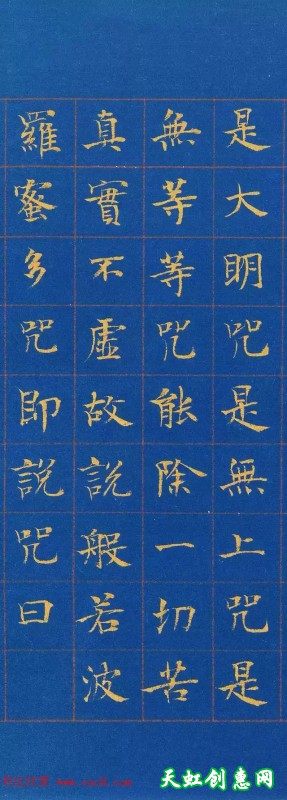 是大明咒是無上咒是
無等等咒能除一切苦
真實不虛故說般若波
羅蜜多咒即說咒曰
天虹创惠网